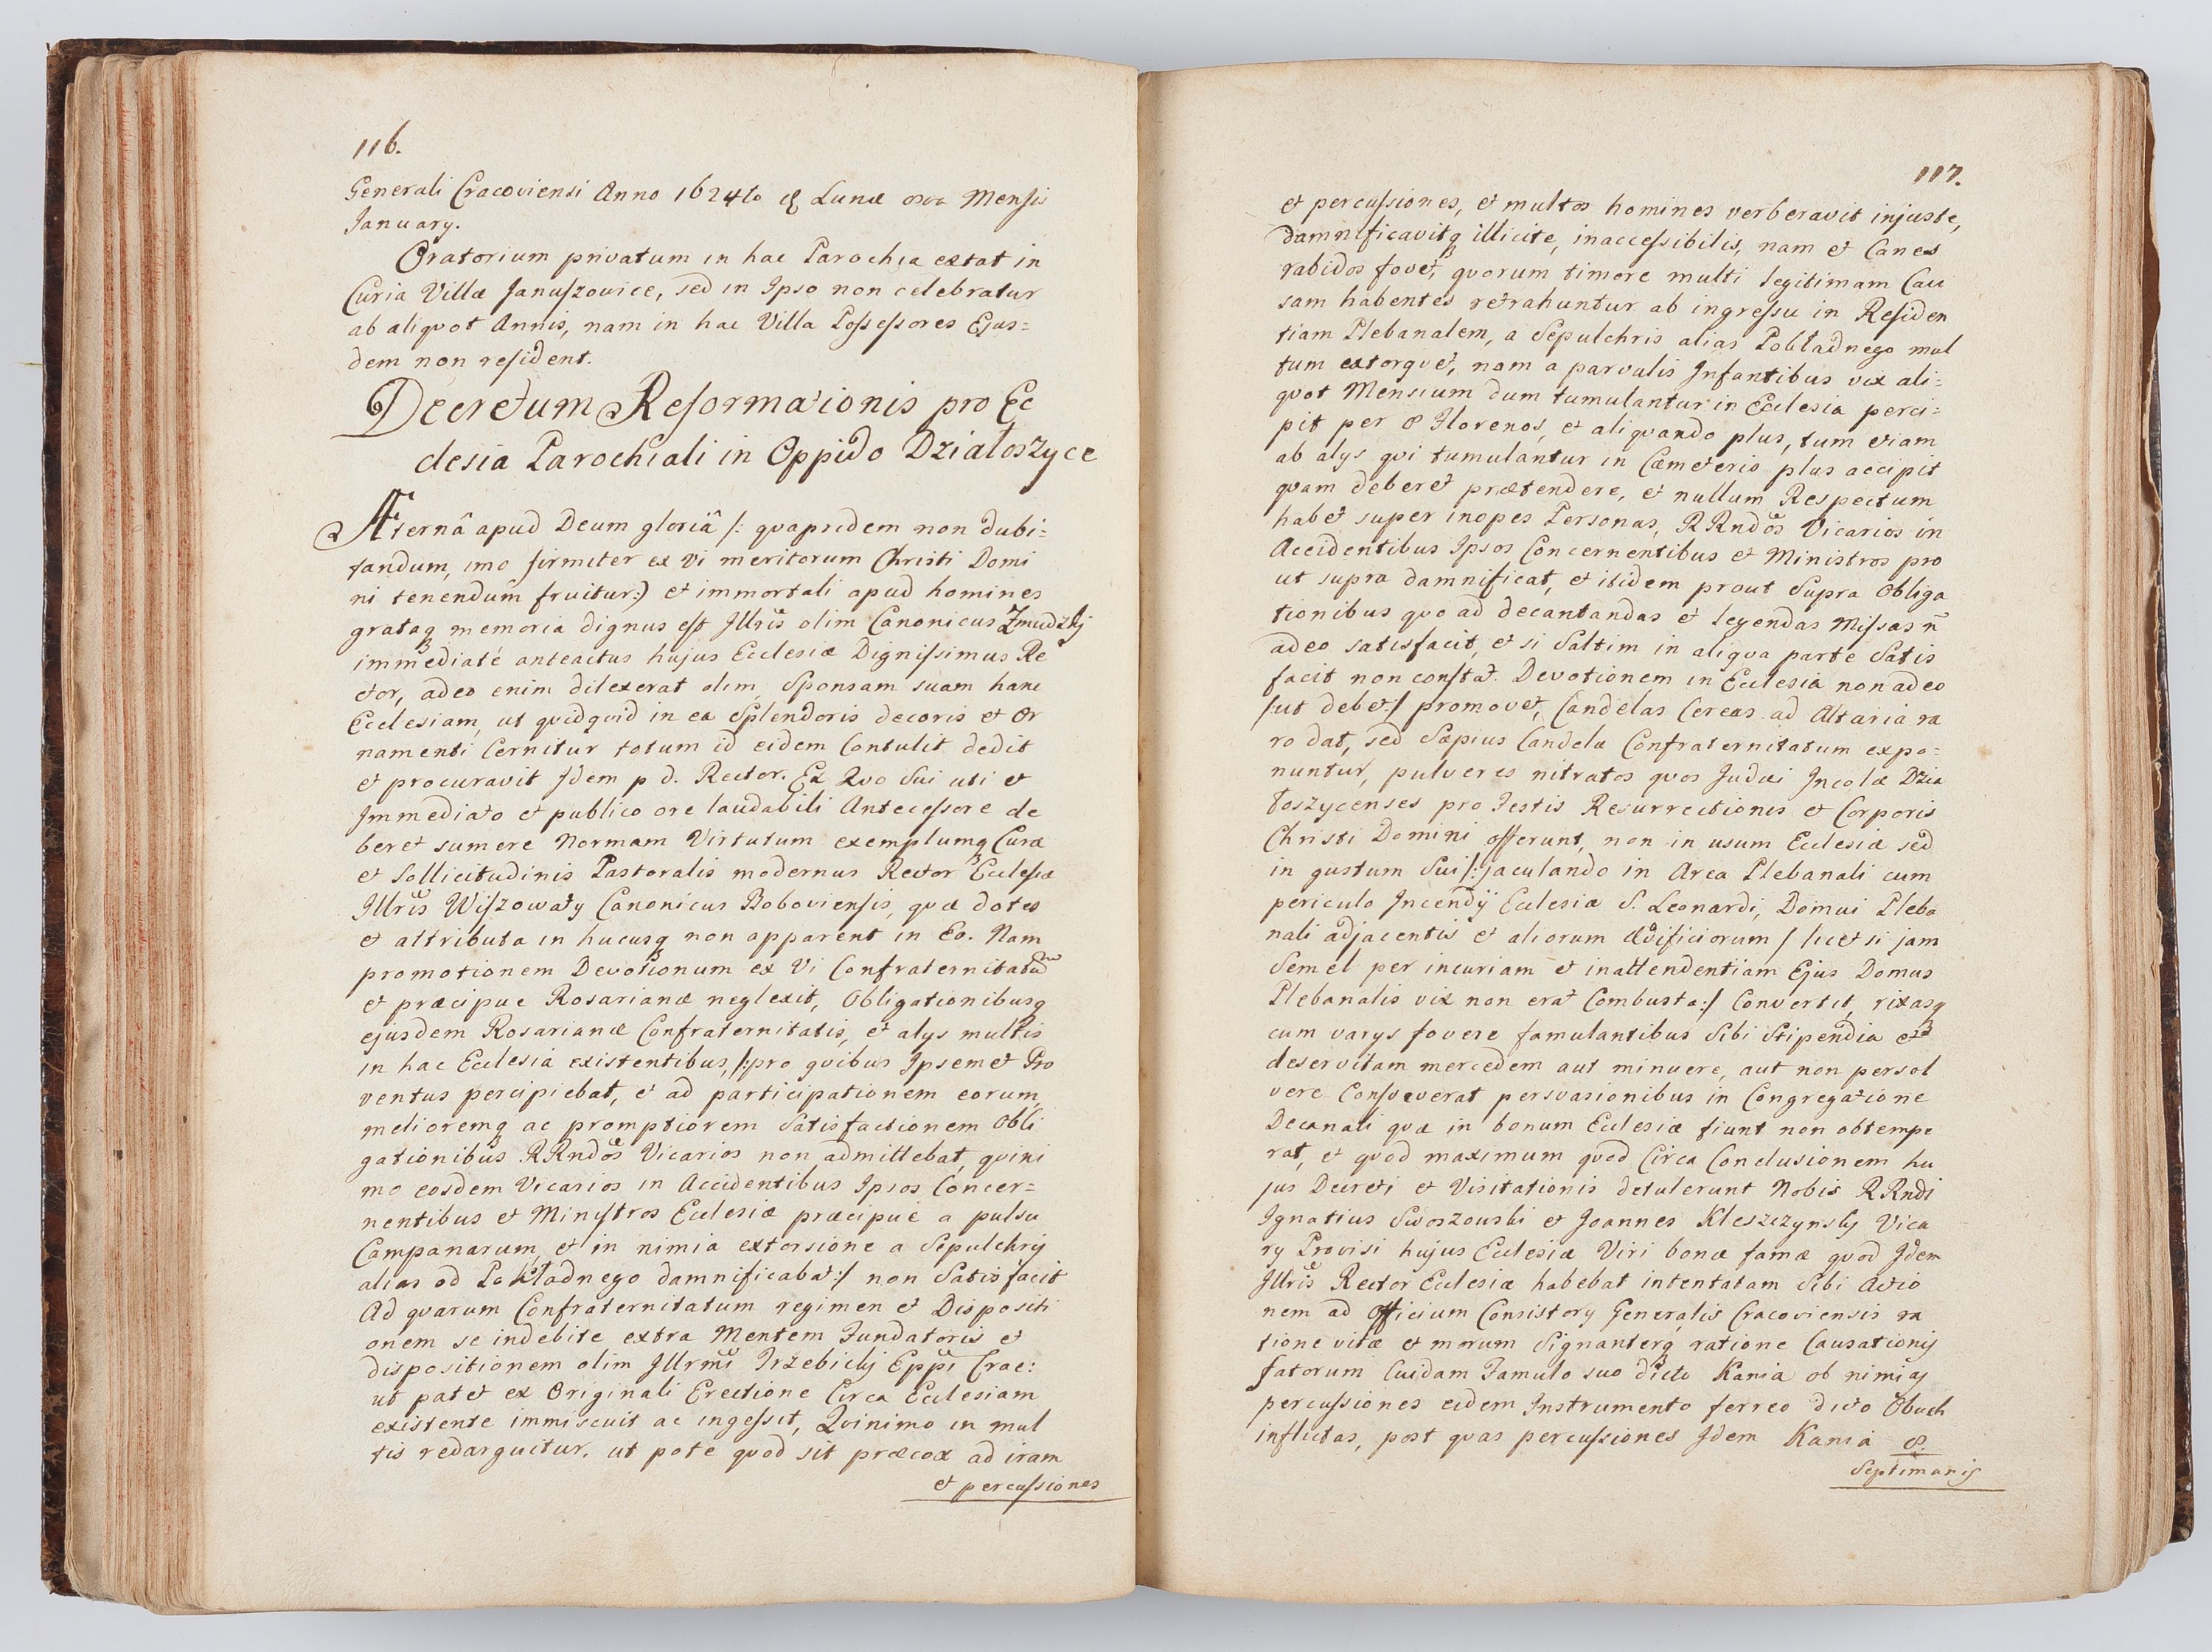 116.
Generali Cracoviensi Anno 1624to Lunæ Mensis
January.
Oratorium privatum in hac Parochia extat in
Curia Villæ Januszowice, sed in Ipso non celebratur
ab aliqvot Annis, nam in hac Villa Possessores Ejus=
dem non resident.
Decretum Reformationis pro Ec
clesia Parochiali in Oppido Działoszyce
Æternâ apud Deum gloriâ /: qvapridem non dubi=
tandum, imo firmiter ex vi meritorum Christi Domi
ni tenendum fruitur:) et immortali apud homines
grataq memoria dignus est Illris olim Canonicus Żmudzkj
immediaté anteactus hujus Ecclesiæ Dignissimus Re
ctor, adeo enim dilexerat olim Sponsam suam hanc
Ecclesiam, ut qvidqvid in ea Splendoris decoris et Or
namenti Cernitur totum id eidem Contulit dedit
et procuravit Idem p d. Rector. Ex Qvo Sui uti et
Immediato et publico ore laudabili Antecessore de
beret sumere Normam Virtutum exemplumq Curæ
et Sollicitudinis Pastoralis modernus Rector Ecclesiæ
Illris Wiszowaty Canonicus Boboviensis, qvæ dotes
et attributa in hucusq non apparent in Eo. Nam
promotionem Devotionum ex Vi Confraternitatum
et præcipue Rosarianæ neglexit, Obligationibusq
ejusdem Rosarianæ Confraternitatis, et alys multis
in hac Ecclesia existentibus, /:pro qvibus Ipsemet Pro
ventus percipiebat, et ad participationem eorum
melioremq ac promptiorem Satisfactionem Obli
gationibus RRndos Vicarios non admittebat, qvini
mo eosdem Vicarios in Accidentibus Ipsos Concer=
nentibus et Ministros Ecclesiæ præcipué a pulsu
Campanarum, et in nimia extorsione a Sepulchrij
alias od Pokładnego damnificabat:/ non Satisfacit
Ad qvarum Confraternitatum regimen et Dispositi
onem se indebite extra Mentem Fundatoris et
dispositionem olim Illrmi Trzebickj Eppi Crac:
ut patet ex Originali Erectione Circa Ecclesiam
existente immiscuit ac ingessit, Qvinimo in mul
tis redarguitur, ut pote qvod sit præcox ad iram
et percussiones
117.
et percussiones, et multos homines verberavit injuste,
damnificavitq illicite, inaccessibilis, nam et Canes
rabidos fovet, qvorum timore multi legitimam Cau
sam habentes retrahuntur ab ingressu in Residen
tiam Plebanalem, a Sepulchris alias Pokładnego mul
tum extorqvet, nam a parvulis Infantibus vix ali=
qvot Mensium dum tumulantur in Ecclesia perci=
pit per 8 Florenos, et aliqvando plus, tum etiam
ab alys qvi tumulantur in Cæmeterio plus accipit
qvam deberet prætendere, et nullum Respectum
habet super inopes Personas, RRndos Vicarios in
Accidentibus Ipsos Concernentibus et Ministros pro
ut supra damnificat, et itidem prout Supra Obliga
tionibus qvo ad decantandas et legendas Missas n̄
adeo satisfacit, et si Saltim in aliqva parte Satis
facit non constat. Devotionem in Ecclesia non adeo
/:ut debet:/ promovet, Candelas Cereas ad Altaria ra
ro dat, sed Sæpius Candelæ Confraternitatum expo=
nuntur, pulveres nitratos qvos Judæi Incolæ Dzia
łoszycenses pro Festis Resurrectionis et Corporis
Christi Domini offerunt, non in usum Ecclesiæ sed
in gustum Sui /:jaculando in Area Plebanali cum
periculo Incendij Ecclesiæ S. Leonardi, Domui Pleba
nali adjacentis et aliorum ædificiorum / licet si jam
Semel per incuriam et inattendentiam Ejus Domus
Plebanalis vix non erat Combusta:/ Convertit, rixasq
cum varys fovere famulantibus Sibi Stipendia et
deservitam mercedem aut minuere, aut non persol
vere Consveverat persvasionibus in Congregatione
Decanali qvæ in bonum Ecclesiæ fiunt non obtempe
rat, et qvod maximum qvod Circa Conclusionem hu
jus Decreti et Visitationis detulerunt Nobis RRndi
Ignatius Swoszouski et Joannes Kleszczynskj Vica
ry Provisi hujus Ecclesiæ Viri bonæ famæ qvod Idem
Illris Rector Ecclesiæ habebat intentatam Sibi Actio
nem ad Officium Consistory Generalis Cracoviensis ra
tione vitæ et morum Signanterq ratione Causationij
fatorum Cuidam Famulo suo dicto Kania ob nimias
percussiones eidem Instrumento ferreo dicto Obuch
inflictas, post qvas percussiones Idem Kania 8.
Septimanis